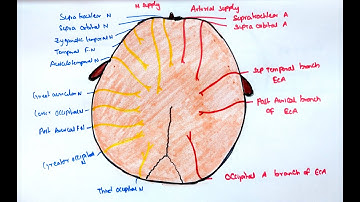 N Supply
Arterial supply
Supratrochlear N
Supra orbital N
Zygomatic temporal N
Temporal F.N
Auriculotemporal N
Great auricular N
Lesser occipital N
Post Auricular F.N
Greater occipital
N
Third occipital N
Supratrochlear A
Supra orbital A
Sup Temporal branch
ECA
Post Auricul branch
of ECA
Occipital A branch of ECA